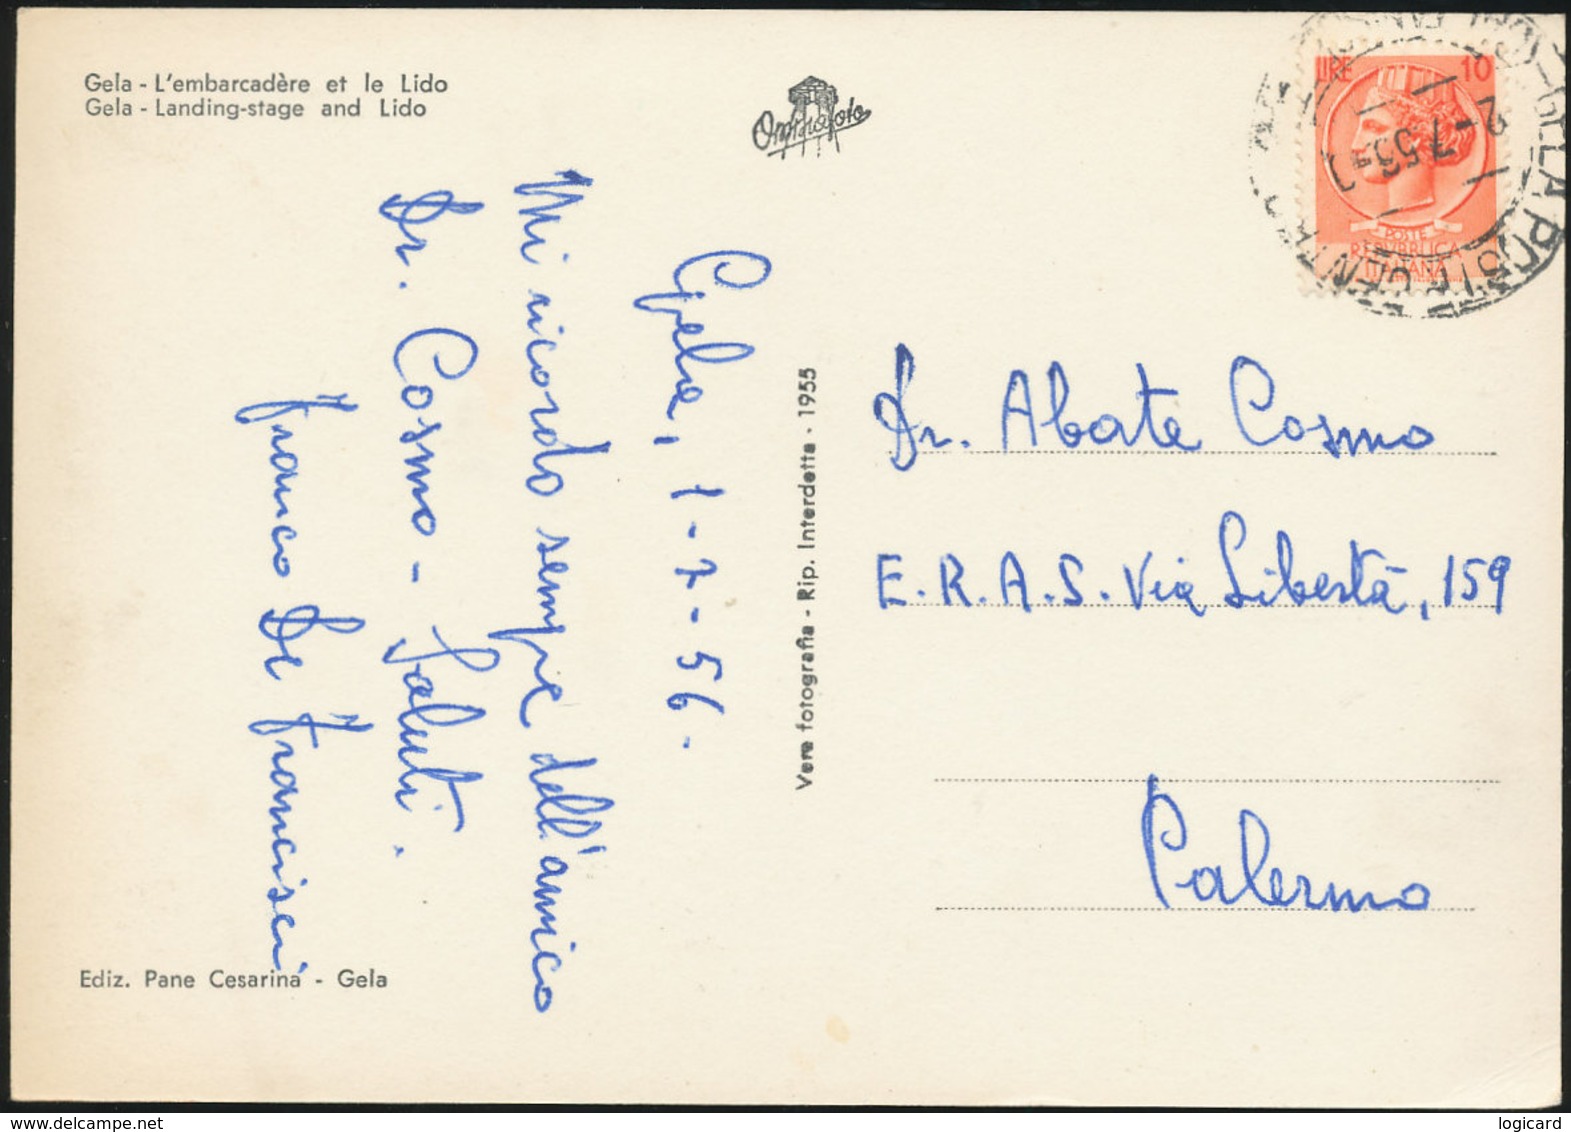 Gela - L'embarcadère et le Lido
Gela - Landing-stage and Lido
Ommafoto
LIRE 10
POSTE
REPVBBLICA
ITALIANA
GELA POSTE
Gela, 1-7-56.
Mi ricordo sempre dell'amico
Dr. Cosmo - Saluti.
Franco De Francisci
Vera fotografia - Rip. Interdetta - 1955
Dr. Abate Cosmo
E.R.A.S. Via Libertà, 159
Palermo
Ediz. Pane Cesarina - Gela
www.delcampe.net
logicard